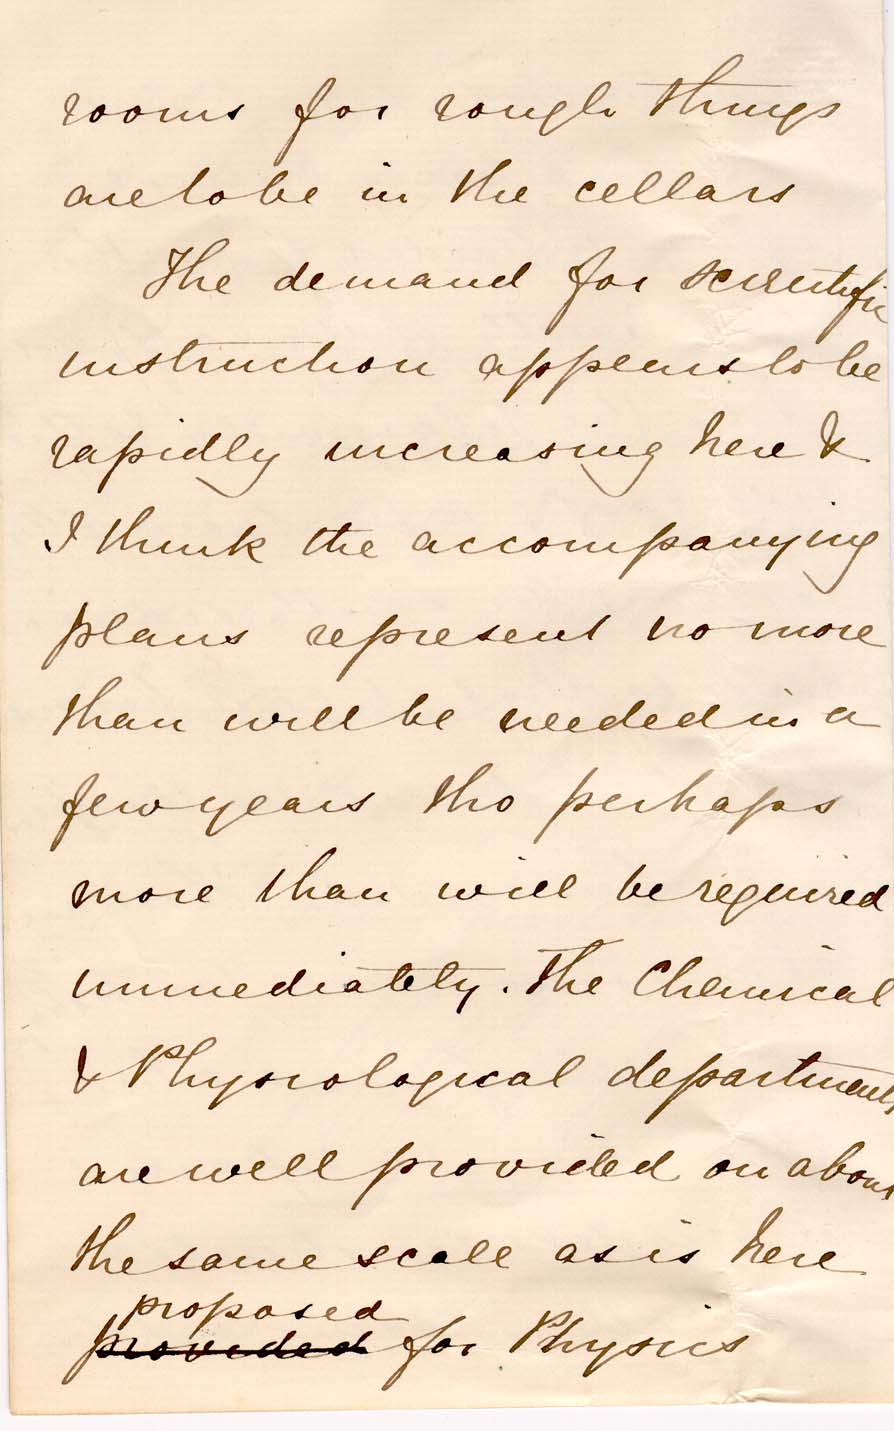 rooms for rough things
are to be in the cellars
The demand for scientific
instruction appears to be
rapidly increasing here &
I think the accompanying
plans represent no more
than will be needed in a
few years tho perhaps
more than will be required
immediately. The Chemical
& Physiological departments
are well provided on about
the same scale as is here
proposed
provided for Physics